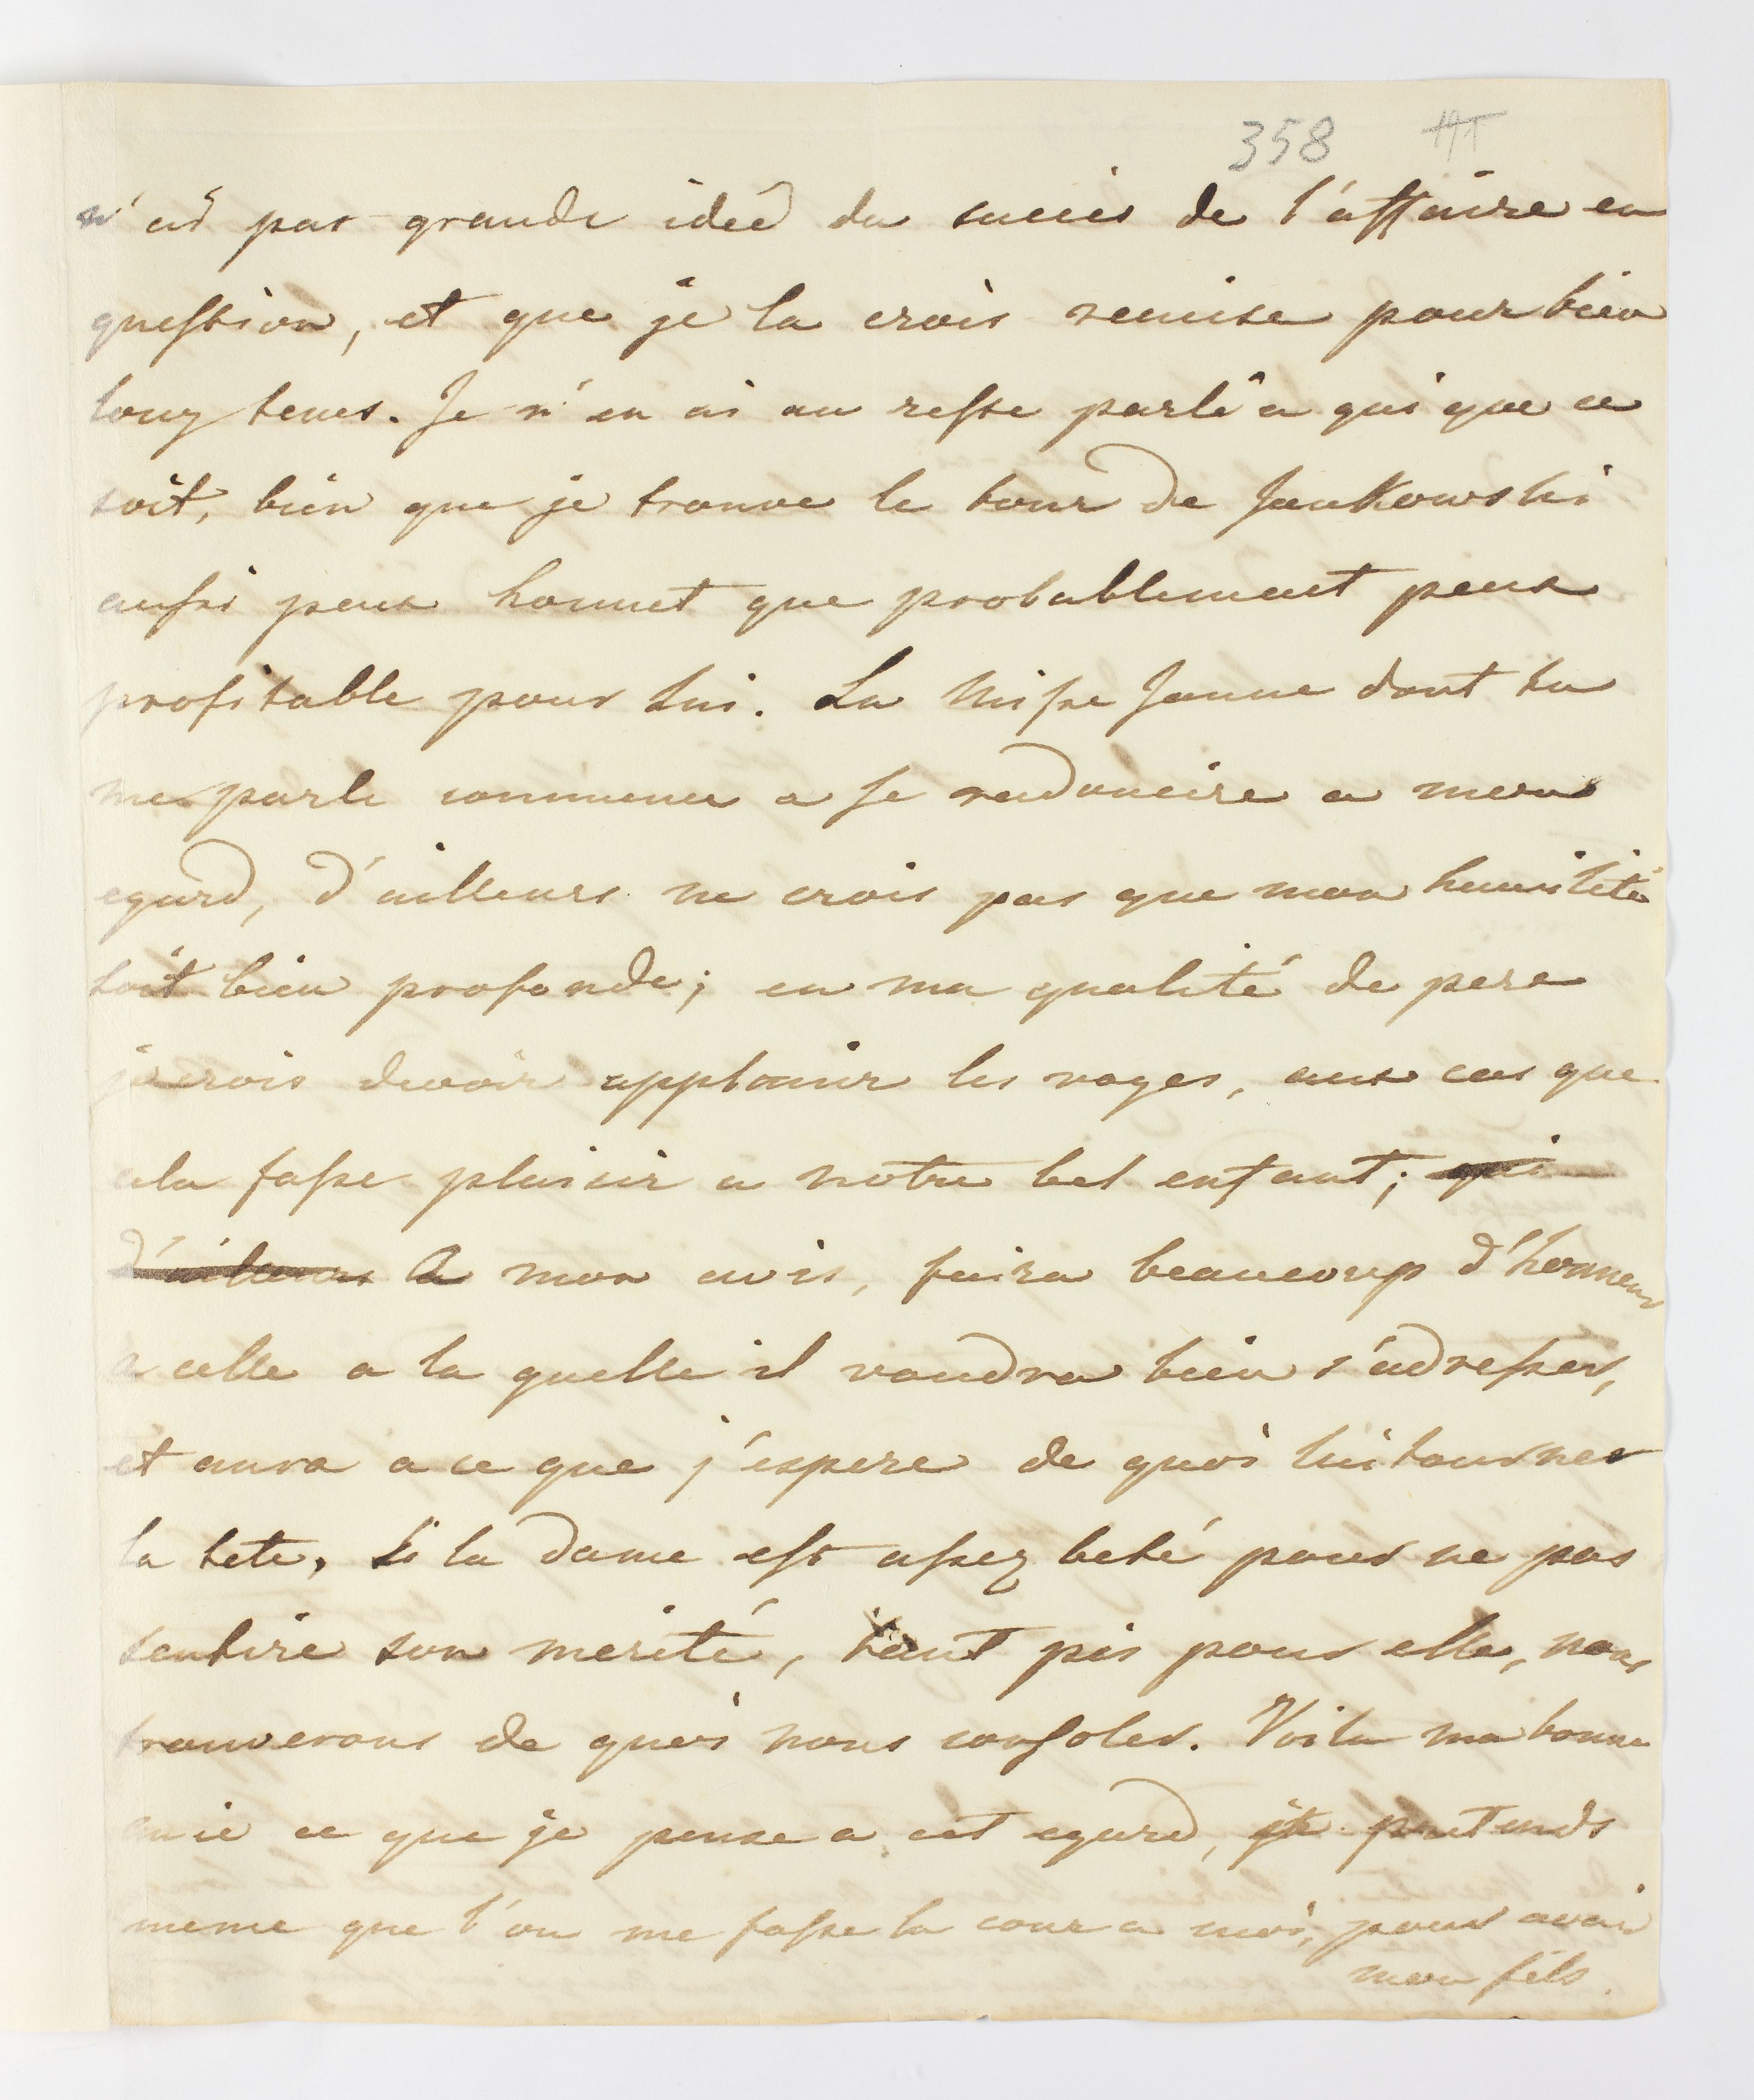 358
n'ai pas grande ideé du succés de l'affaire en
question, et que je la crois remise pour bien
long tems. Je n'en ai au reste parlé a qui que ce
soit, bien que je trouve le tour de Jankowski
aussi peux honnet que probablement peux
profitable pour lui. La Miss Janne dont tu
me parle commence a se radoucire a mon
egard, d'ailleurs ne crois pas que mon humilité
soit bien profonde; en ma qualité de pere
je crois devoir applanir les voyes, aux cas que
cela fasse plaisir a notre bel enfant; qui
d'ailleurs A mon avis, faira beaucoup d'honneur
a celle a la quelle il voudra bien s'adresser,
et aura a ce que j'espere de quoi lui tourner
la tete. Si la dame est assez beté pour ne pas
sentire son merité, tant pis pour elle, nous
trouverons de quoi nous consoler. Voila ma bonne
amie ce que je pense a cet egard, je pretends
meme que l'on me fasse la cour a moi, pour avoir
mon fils